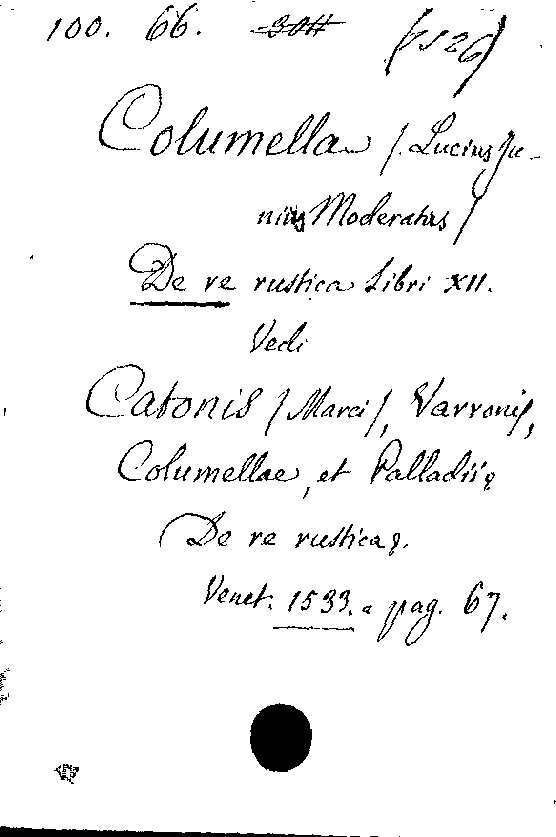 100. 66. 3011 (1526)
Columella /. Lucius Ju-
nius Moderatus /
De re rustica Libri XII.
Vedi
Catonis / Marci /, Varronis,
Columellae, et Palladii:
De re rustica:.
Venet. 1533. a pag. 67.